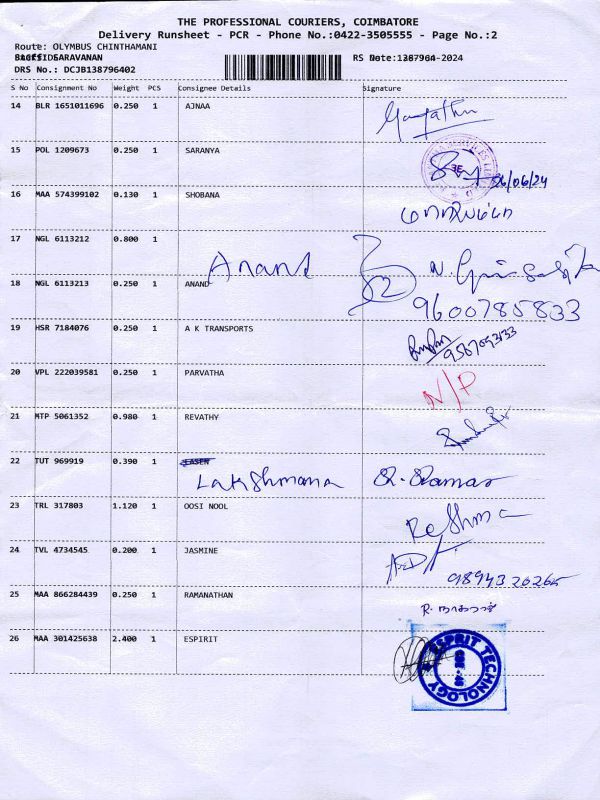 THE PROFESSIONAL COURIERS, COIMBATORE
Delivery Runsheet - PCR - Phone No.:0422-3505555 - Page No.:2
Route: OLYMBUS CHINTHAMANI
SARAVANAN
DRS No.: DCJB138796402
S No Consignment No Weight PCS Consignee Details Signature
14 BLR 1651011696 0.250 1 AJNAA
15 POL 1209673 0.250 1 SARANYA
06/06/24
16 MAA 574399102 0.130 1 SHOBANA
17 NGL 6113212 0.800 1
Anand
18 NGL 6113213 0.250 1 ANAND
9600785833
19 HSR 7184076 0.250 1 A K TRANSPORTS
20 VPL 222039581 0.250 1 PARVATHA
N/P
21 MTP 5061352 0.980 1 REVATHY
22 TUT 969919 0.390 1
Lakshmana
23 TRL 317803 1.120 1 OOSI NOOL
Reshma
24 TVL 4734545 0.200 1 JASMINE
9894320265
25 MAA 866284439 0.250 1 RAMANATHAN
26 MAA 301425638 2.400 1 ESPIRIT
ESPRIT TECHNOLOGY
CBE-5